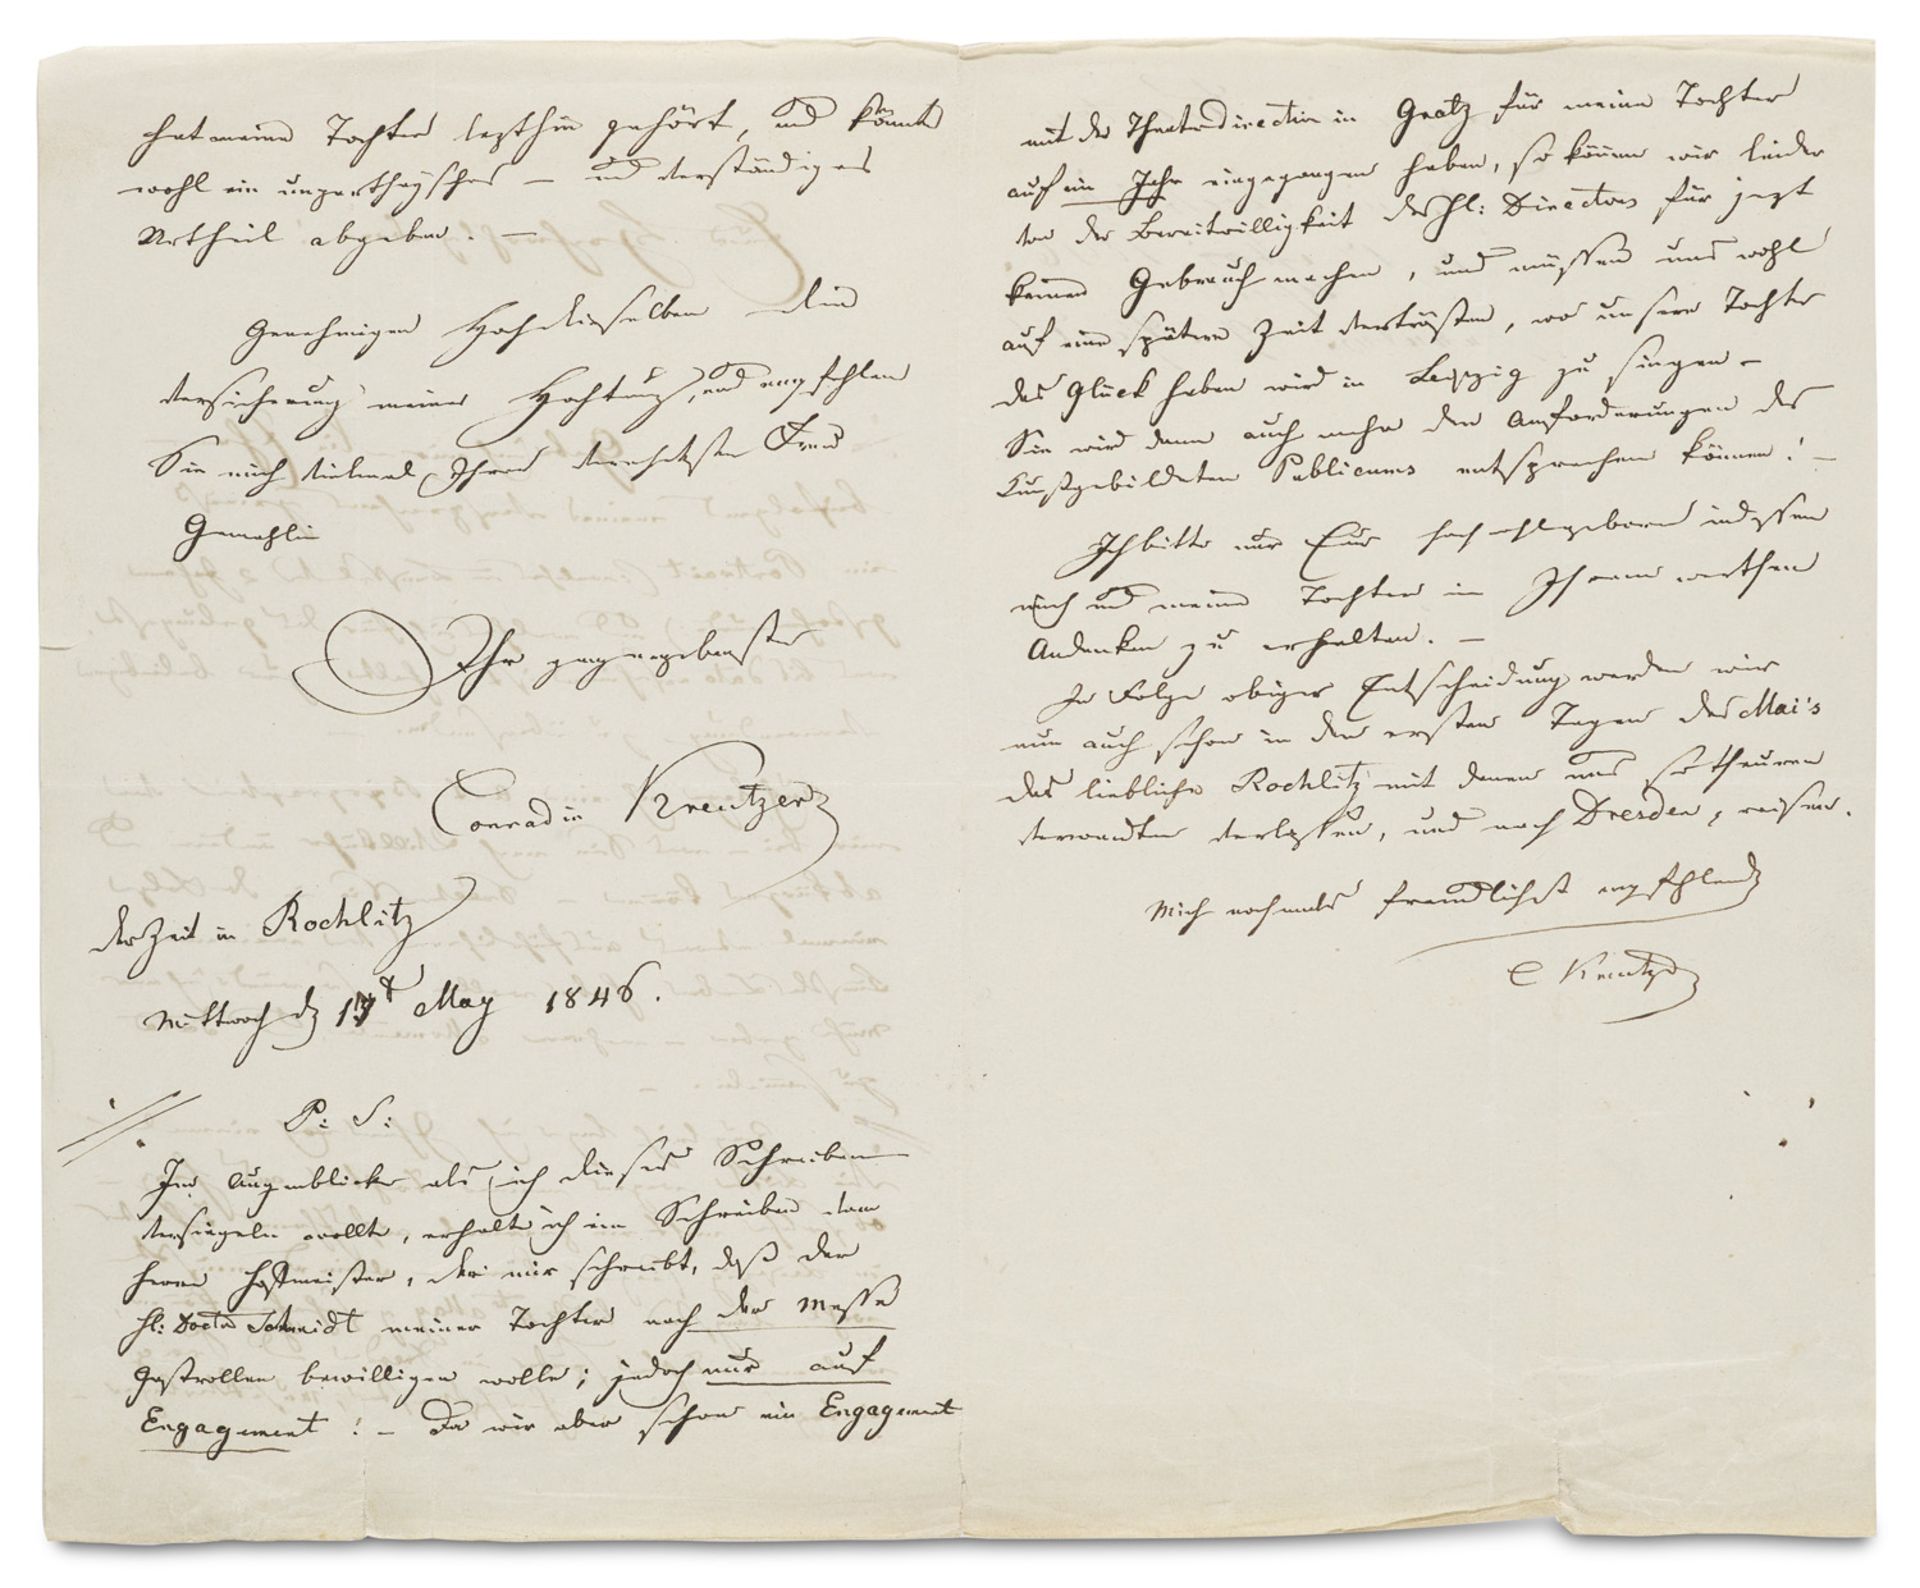 hat meine Tochter lezthin gehört, und könnte
wohl ein unpartheyisches – und verständiges
Urtheil abgeben. –
Genehmigen Hochdieselben die
Versicherung meiner Hochachtung, und empfehlen
Sie mich vielmal Ihrer verehrtesten Frau
Gemahlin
Ihr ganz ergebenster
Conradin Kreutzer
der Zeit in Rochlitz
Mittwoch d 13t May 1846.
P: S:
Im Augenblicke als ich dieses Schreiben
versiegeln wollte, erhalte ich ein Schreiben vom
Herrn Hofmeister, der mir schreibt, daß der
H: Doctor Schmidt meiner Tochter nach der Messe
Gastrollen bewilligen wolle; jedoch nur auf
Engagement! – Da wir aber schon ein Engagement
mit der Theaterdirection in Gratz für meine Tochter
auf ein Jahr eingegangen haben, so können wir leider
von der Bereitwilligkeit des H: Directors für jezt
keinen Gebrauch machen, und müssen uns wohl
auf eine spätere Zeit vertrösten, wo unsere Tochter
das Glück haben wird in Leipzig zu singen –
Sie wird dann auch mehr den Anforderungen des
Kunstgebildeten Publicums entsprechen können! –
Ich bitte nur Euer Hochwohlgeboren indessen
mich und meine Tochter in Ihrem werthen
Andenken zu erhalten. –
In Folge obiger Entscheidung werden wir
nun auch schon in den ersten Tagen des Mai's
das liebliche Rochlitz mit denen uns so theuren
Verwandten verlassen, und nach Dresden reisen.
Mich nochmals freundlichst empfehlend
C Kreutzer